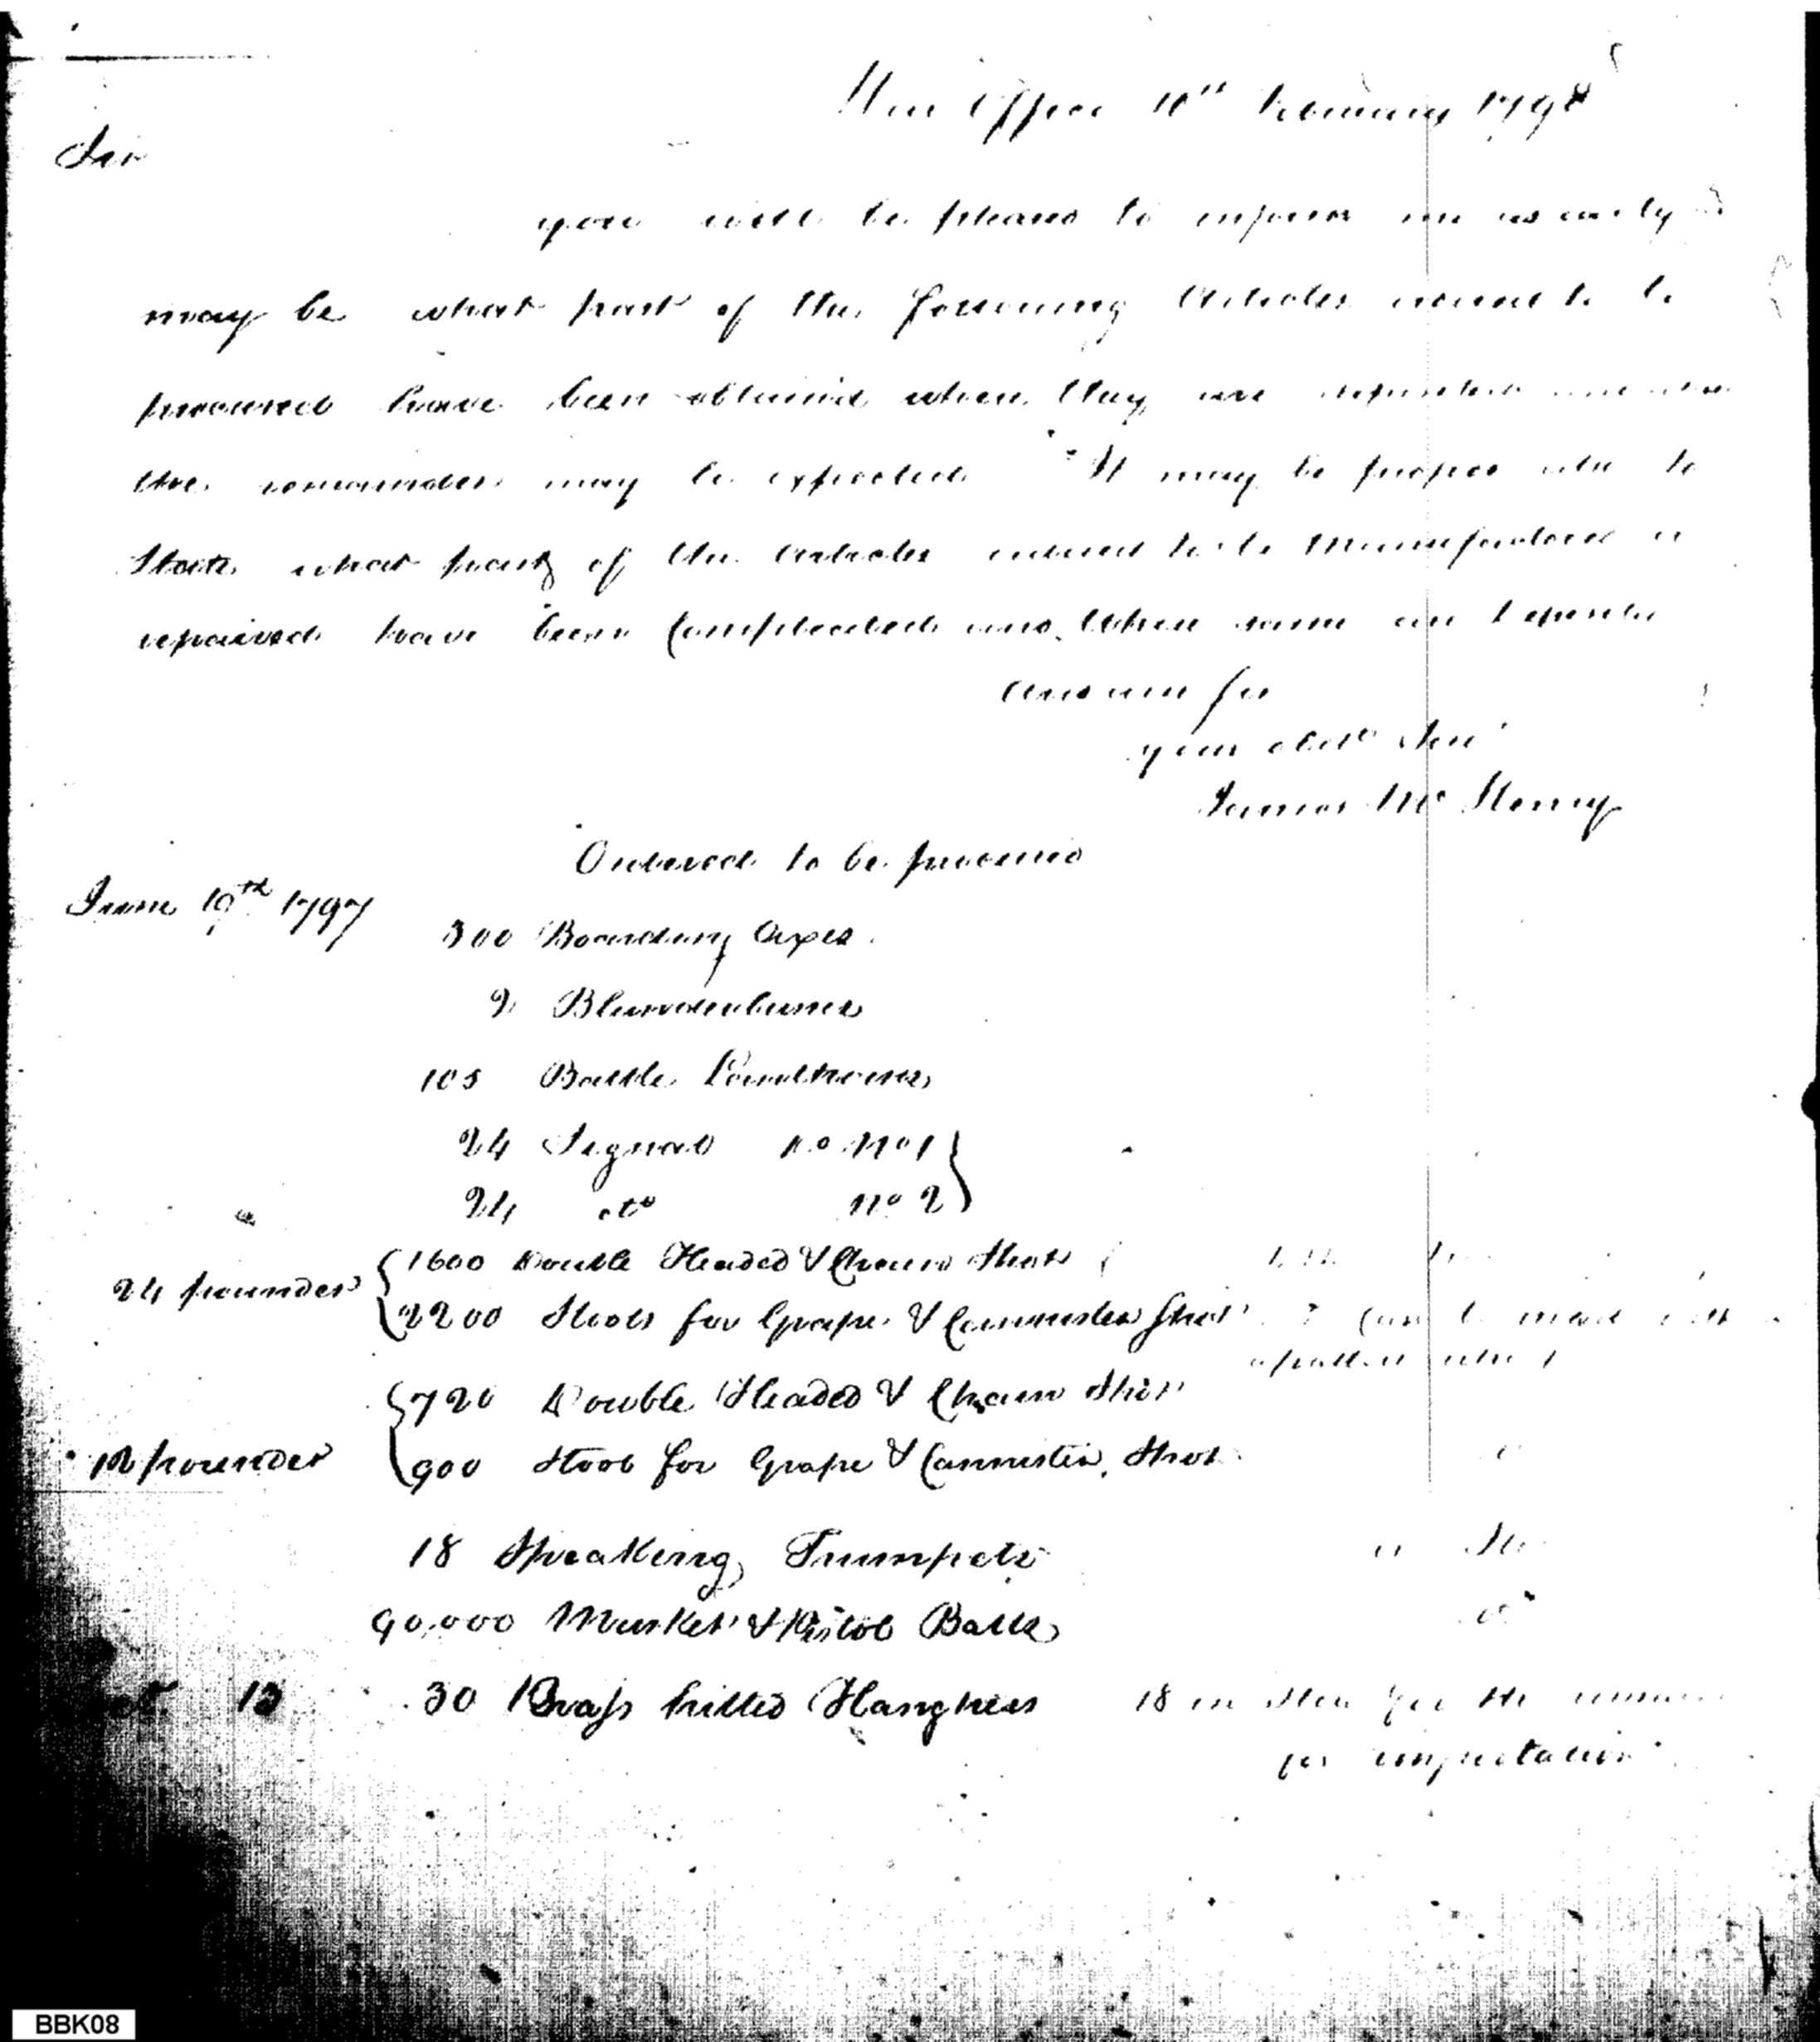 War Office 10th February 1798
Sir
you will be pleased to inform me as early as
may be what part of the following Articles to be
procured have been obtained when they are deposited and when
the remainder may be expected It may be proper also to
State what part of the Articles to be Manufactured or
repaired have been Compleated and When same can
and am Sir
your obdt Ser
James McHenry
Ordered to be procured
June 19th 1797
300 Boarding Axes
9 Blunderbusses
105 Battle Lanthorns
24 Signal Do No 1
24 do No 2
24 pounder
1600 Double Headed & Chain Shot
2200 Stools for Grape & Cannister Shot can be made
12 pounder
720 Double Headed & Chain Shot
900 Stools for Grape & Cannister Shot
18 Speaking Trumpets
90,000 Musket & Pistol Balls
13 30 Brass hilted Hanghers 18 in Store
for importation
BBK08